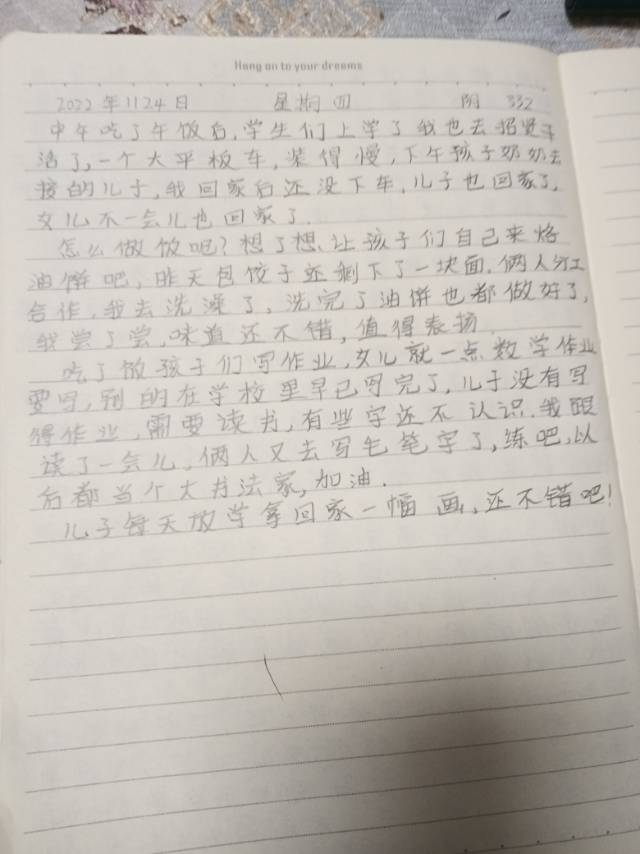 Hang on to your dreams
2022年11 24日 星期四 阴 332
中午吃了午饭后,学生们上学了我也去招贤干
活了,一个大平板车,装得慢,下午孩子奶奶去
接的儿子,我回家后还没下车,儿子也回家了,
女儿不一会儿也回家了.
怎么做饭吧?想了想,让孩子们自己来烙
油饼吧,昨天包饺子还剩下了一块面.俩人分工
合作,我去洗澡了,洗完了油饼也都做好了,
我尝了尝,味道还不错,值得表扬.
吃了饭孩子们写作业,女儿就一点数学作业
要写,别的在学校里早已写完了,儿子没有写
得作业,需要读书,有些字还不认识,我跟
读了一会儿,俩人又去写毛笔字了,练吧,以
后都当个大书法家,加油.
儿子每天放学拿回家一幅画,还不错吧!